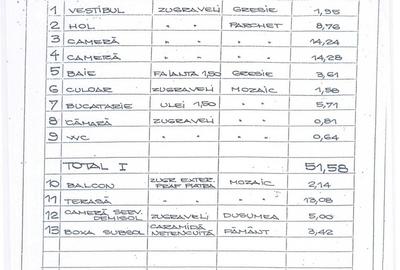 1 VESTIBUL ZUGRAVELI GRESIE 1,95
2 HOL " " PARCHET 8,76
3 CAMERĂ " " " " 14,24
4 CAMERĂ " " " " 14,28
5 BAIE FAIANTA 1,50 GRESIE 3,61
6 CULOAR ZUGRAVELI MOZAIC 1,58
7 BUCATARIE ULEI 1,50 " " 5,71
8 CĂMARĂ ZUGRAVELI " " 0,81
9 WC " " " " 0,64
TOTAL I 51,58
10 BALCON ZUGR EXTER. PRAF PIATRA MOZAIC 2,14
11 TERASĂ " " " " 13,08
12 CAMERĂ SERV. DEMISOL ZUGRAVELI DUSUMEA 5,00
13 BOXA SUBSOL CARAMIDĂ NETENCUITĂ PĂMÂNT 3,42